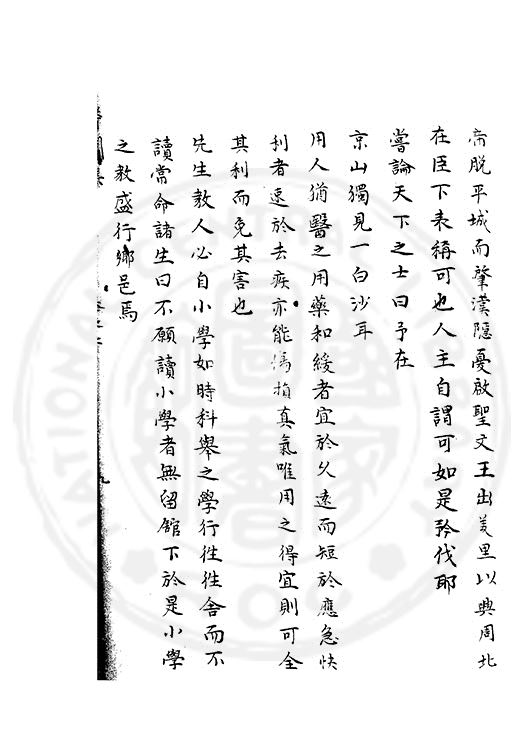 帝脱平城而肇漢隱憂啟聖文王出羑里以興周北
在臣下表稱可也人主自謂可如是矜伐耶
嘗論天下之士曰予在
京山獨見一白沙耳
用人猶醫之用藥和緩者宜於久遠而短於應急快
利者速於去疾亦能傷損真氣唯用之得宜則可全
其利而免其害也
先生教人必自小學如時科舉之學行徃徃舍而不
讀常命諸生曰不願讀小學者無留館下於是小學
之教盛行鄉邑焉